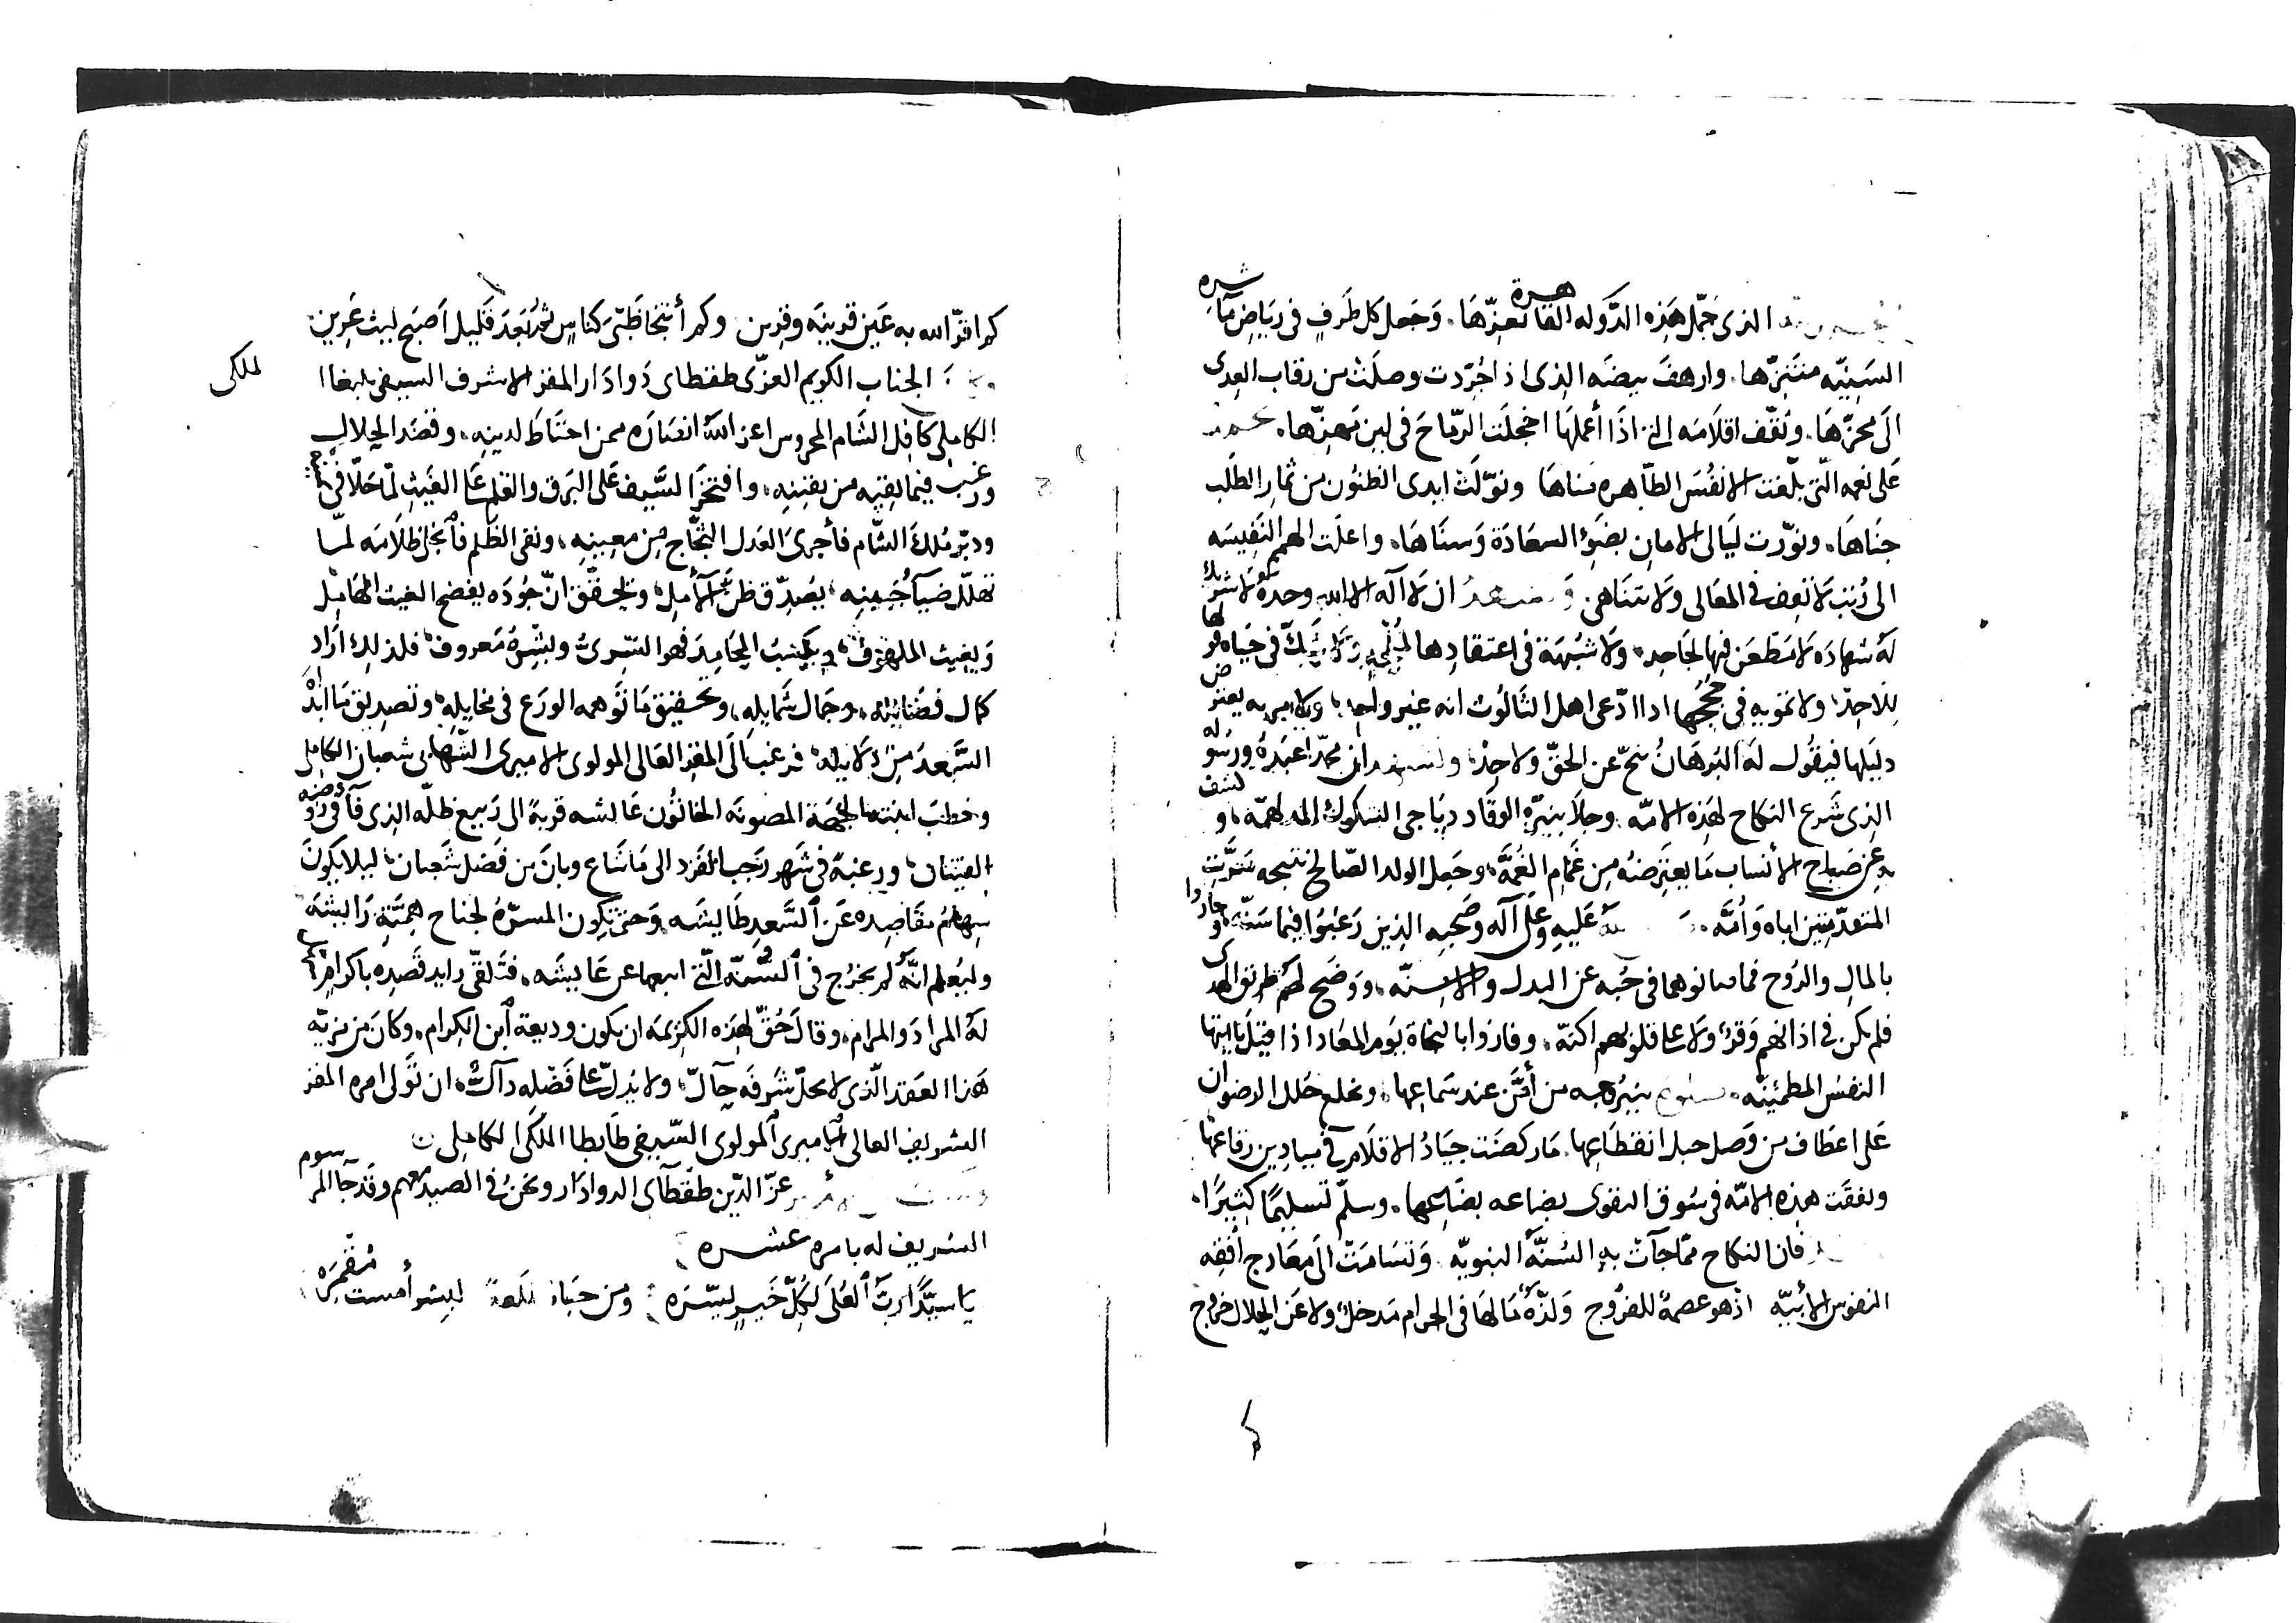 الذى جمّل هَذِه الدَّوله القاهرة بعزّها. وَجَعل كل طَرفٍ فى ريَاضِ مَآثره
السَنِيّه متنَزّها. وارهفَ بيضَه الذى اذا جُرّدت وصلَتْ من رقاب العِدى
الَى محزّهَا. وثقّف اقلامَه التى اذَا أعملهَا اخجلَت الرّماحَ فى لين مَهزّها. نحمده
عَلى نعمه الّتى بلّغت الانفُسَ الطّاهره مُناهَا ونوّلَتْ ايدى الظنُون من ثمارِ الطلَب
جنَاهَا. ونوّرت ليَالى الامانى بضَوء السعَادَة وَسنَاهَا. واعلَت الهمم النَفِيسَه
الى رُتبٍ لا تغض فى المعَالى ولا تتنَاهى. ونشهدُ ان لا اله الا الله وحدهُ لا شريك
لهُ شهادَه لا مَطعَن فيهَا لجَاحِد. ولا شبُهَة فى اعتقادِها
ولا تمويه فى حُججُها اذا ادّعى اهل الثَالُوث انه غير واحِد
دليَلها فيقُول لَه البُرهَانُ تنحّ عن الحَقّ ولاحِدْ. ونشهد ان محمّدا عَبدَهُ ورسُوله
الذِى شَرع النكاح لهَذِه الامّه. وجلاَ بنيّره الوقَّاد ديَاجى الشكوك المدلهمّه. وكشف
به عن صَباح الأنساب مَا يعتَرضهُ مِن غَمام الغُمَّه. وجَعل الولد الصّالح نتيجه سَرّت
المتعدّمين اباه وَأمَّه. عَليهِ وعَلى آله وصَحبه الذين رَغبُوا فيما سَنّه وجادُوا
بالمالِ والرُوح فما مانوهما فى حُبه عن البدل والاسنّه. ووَضَح لهُم طريق الهدى
فلم يكن فى اذانهم وَقرٌ ولا على قلوبهم اكنّه. وفازوا بالنجاة يَوم المعَاد اذا قيل يا ايتها
النفسُ المطمئِنّه. من أمَّن عند سَماعِها. وتخلع حُلل الرضوان
عَلى اعطاف من وَصل حبل انقطَاعِها. مَا ركضَت جيَادُ الاقلَام فى ميادِين رقاعها
ونفقَت هذِه الامّه فى سُوق التقوى بضاعه بضَايعها. وسلّم تَسليمًا كثيرًا.
فان النكاح ممّا جآت به السُنَّه النبويّه وَتسَامَتْ الَى معَارج أفقه
النفوس الأبيّه اذ هو عصمةٌ للفرُوج وَلذّة مَا لهَا فى الحرام مَدخلٌ ولا عَن الحِلال خروج
كم اقرّ الله به عَين قرينَه وقرين وكم أنتجَا ظَبىَ كناسٍ ثم بَعدَ قَليل اَصبَح ليث عَرِين
الجناب الكريم العزّى طقطاى دَوادَار المقر الاشرف السيفى يلبغا ا لملكى
الكاملى كافِل الشَام المحروس اعز اللّهُ انصَارَه ممن احتَاطَ لدينِه. وقصَد الحِلال
ورغب فيما يقيه من يقينِه. وافتخرَ السَّيف عَلى البَرق والقلم على الغَيث لمّا حَلّا فى
ودبّر مُلكَ الشَّام فأجرى العَدل الثجّاج مِن معينِه. ونفى الظلم فانجلى ظلامَه لمّا
تهلّل ضيآ جَبينه. يصدّق ظن الآمل. وتحقّق انّ جُودَه يفضح الغيث الهَامِل
وَيغيث الملهُوف. ويكسبُ المحَامِدَ فهو السَّرىُّ وبشرهُ مَعروف. فلذلك ارَاد
كمال فضَائله. وجَمال شمَايِله. وتحقيق مَا توهمه الورَع فى مخايلِه. وتصديق مَا ابْدَاه
السَّعدُ من دَلايله. فرغب الَى المقر العَالى المولوى الاميرى الشّهابى شعبان الكاملى
وخطبَ ابنته الجهَة المصونه الخاتون عَائشه قربةً الى رَبيع ظلّه الذى فاق روضه
الفينان. ورغبة فى شَهر رَجب الفَرد الى مَا شَاع وبانَ من فَضل شَعبان. ليلا يكونَ
سِهامُ مقَاصِدِه عَن السَّعدِ طَايشَه. وَحتى تكون المسرّةُ لجناح همَّتهِ رَايشَه
وليُعلم انَّه لم يخرُج فى السُّنّه الّتى اتبعها عن عَايشَه. فتَلقّى رايد قصدِه باكرام
لَهُ المرادَ والمرام. وقالَ حُقّ لهذه الكرِيمَه ان يكون وديعة ابن الكِرام. وكانَ من مزيّه
هَذا العَقد الّذى لا يحلّ شَرفَه حآلٌّ. ولا يدلّ على فَضله دآلٌّ. ان تَولى امره المقر
الشريف العالى الاميرى المولوى السّيفى طَايطا الملكى الكاملى
عزّ الدّين طقطآى الدوادَار ونحنُ فى الصيد معهم وقدجآ المرسوم
الشريف له بامره عشره
يَا سيَّدًا ربُّ العُلَى لكُلِّ خَيرٍ يسّرَه ومن حبَاهُ طلعةً لبشر أمست مُقمرَه